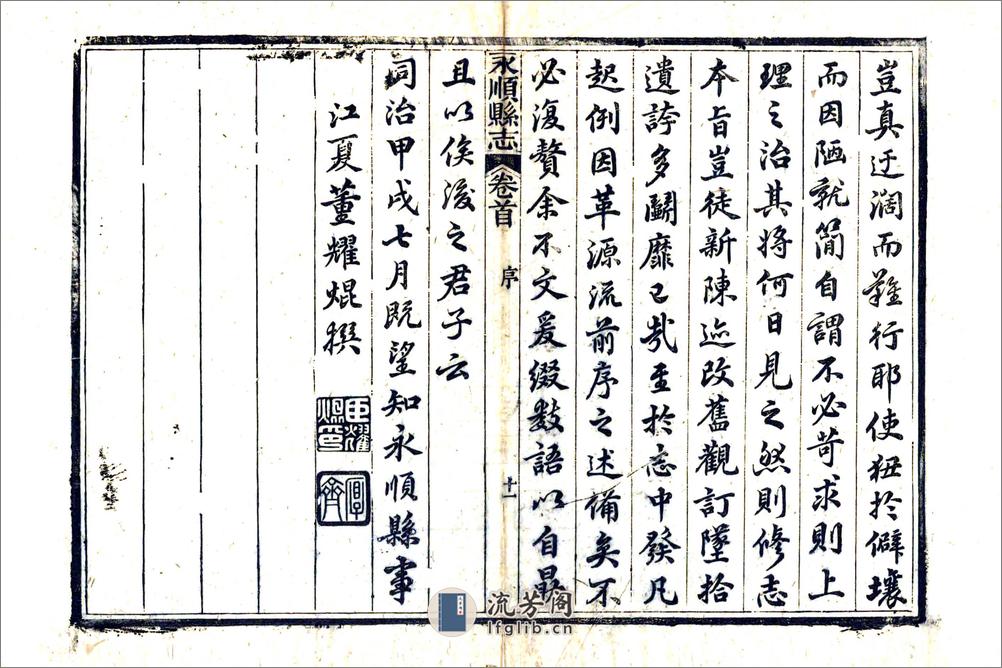 豈真迂濶而難行耶使狃於僻壤
而因陋就簡自謂不必苛求則上
理之治其將何日見之然則修志
本旨豈徒新陳迹改舊觀訂墜拾
遺誇多鬭靡已哉至於志中發凡
起例因革源流前序之述備矣不
必復贅余不文爰綴數語以自勗
永順縣志
卷首
序
十一
且以俟後之君子云
同治甲戌七月既望知永順縣事
江夏董耀焜撰
流芳阁
lfglib.cn